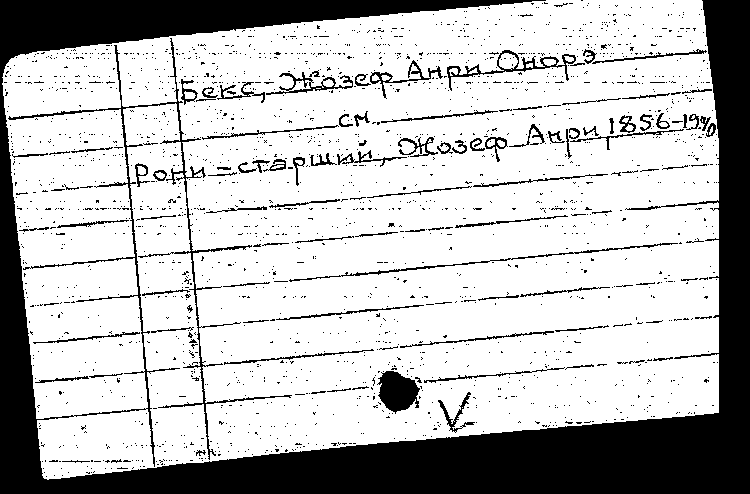 Бекс, Жозеф Анри Онорэ
см.
Рони-старший, Жозеф Анри, 1856-1940
V